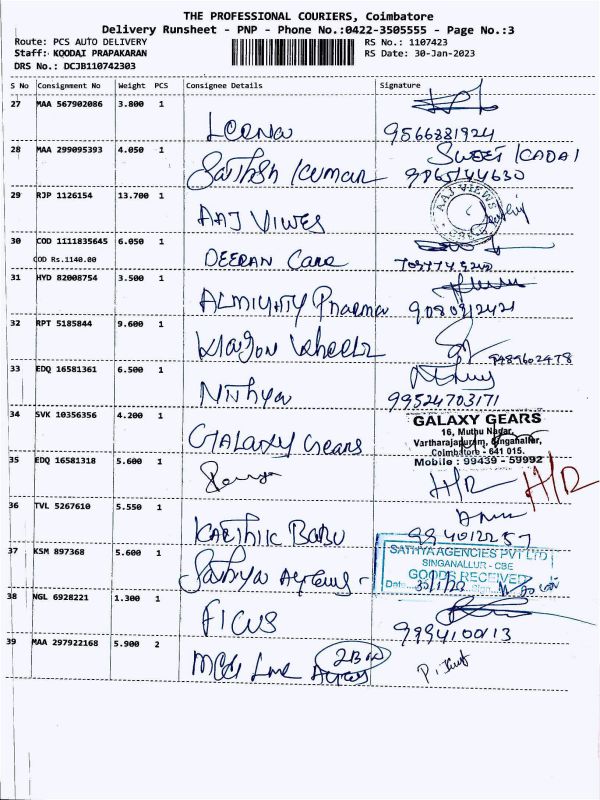 THE PROFESSIONAL COURIERS, Coimbatore
Delivery Runsheet - PNP - Phone No.:0422-3505555 - Page No.:3
Route: PCS AUTO DELIVERY
RS No.: 1107423
Staff: KOODAI PRAPAKARAN
RS Date: 30-Jan-2023
DRS No.: DCJB110742303
S No Consignment No Weight PCS Consignee Details Signature
27 MAA 567902086 3.800 1
Leena 9566881924
28 MAA 299095393 4.050 1 SWEET KADAI
Sathish Kumar 9865144630
29 RJP 1126154 13.700 1 AAJ VIEWS
AAJ VIWES
30 COD 1111835645 6.050 1
COD Rs.1140.00 DEERAN Care
31 HYD 82008754 3.500 1
ALMIGHTY Pharma
32 RPT 5185844 9.600 1
Wheels 9489602478
33 EDQ 16581361 6.500 1
Nithya 99524703171
34 SVK 10356356 4.200 1 GALAXY GEARS
16, Muthu Nagar,
Vartharajapuram, Singanallur,
GALAXY Gears Coimbatore - 641 015.
Mobile : 99439 - 59992
35 EDQ 16581318 5.600 1
H/R H/R
36 TVL 5267610 5.550 1
KARTHIK BABU
37 KSM 897368 5.600 1 SATHYA AGENCIES PVT LTD
SINGANALLUR - CBE
Sathya GOODS RECEIVED
Date 30/1/23 Sign
38 NGL 6928221 1.300 1
FICUS 9994100113
39 MAA 297922168 5.900 2